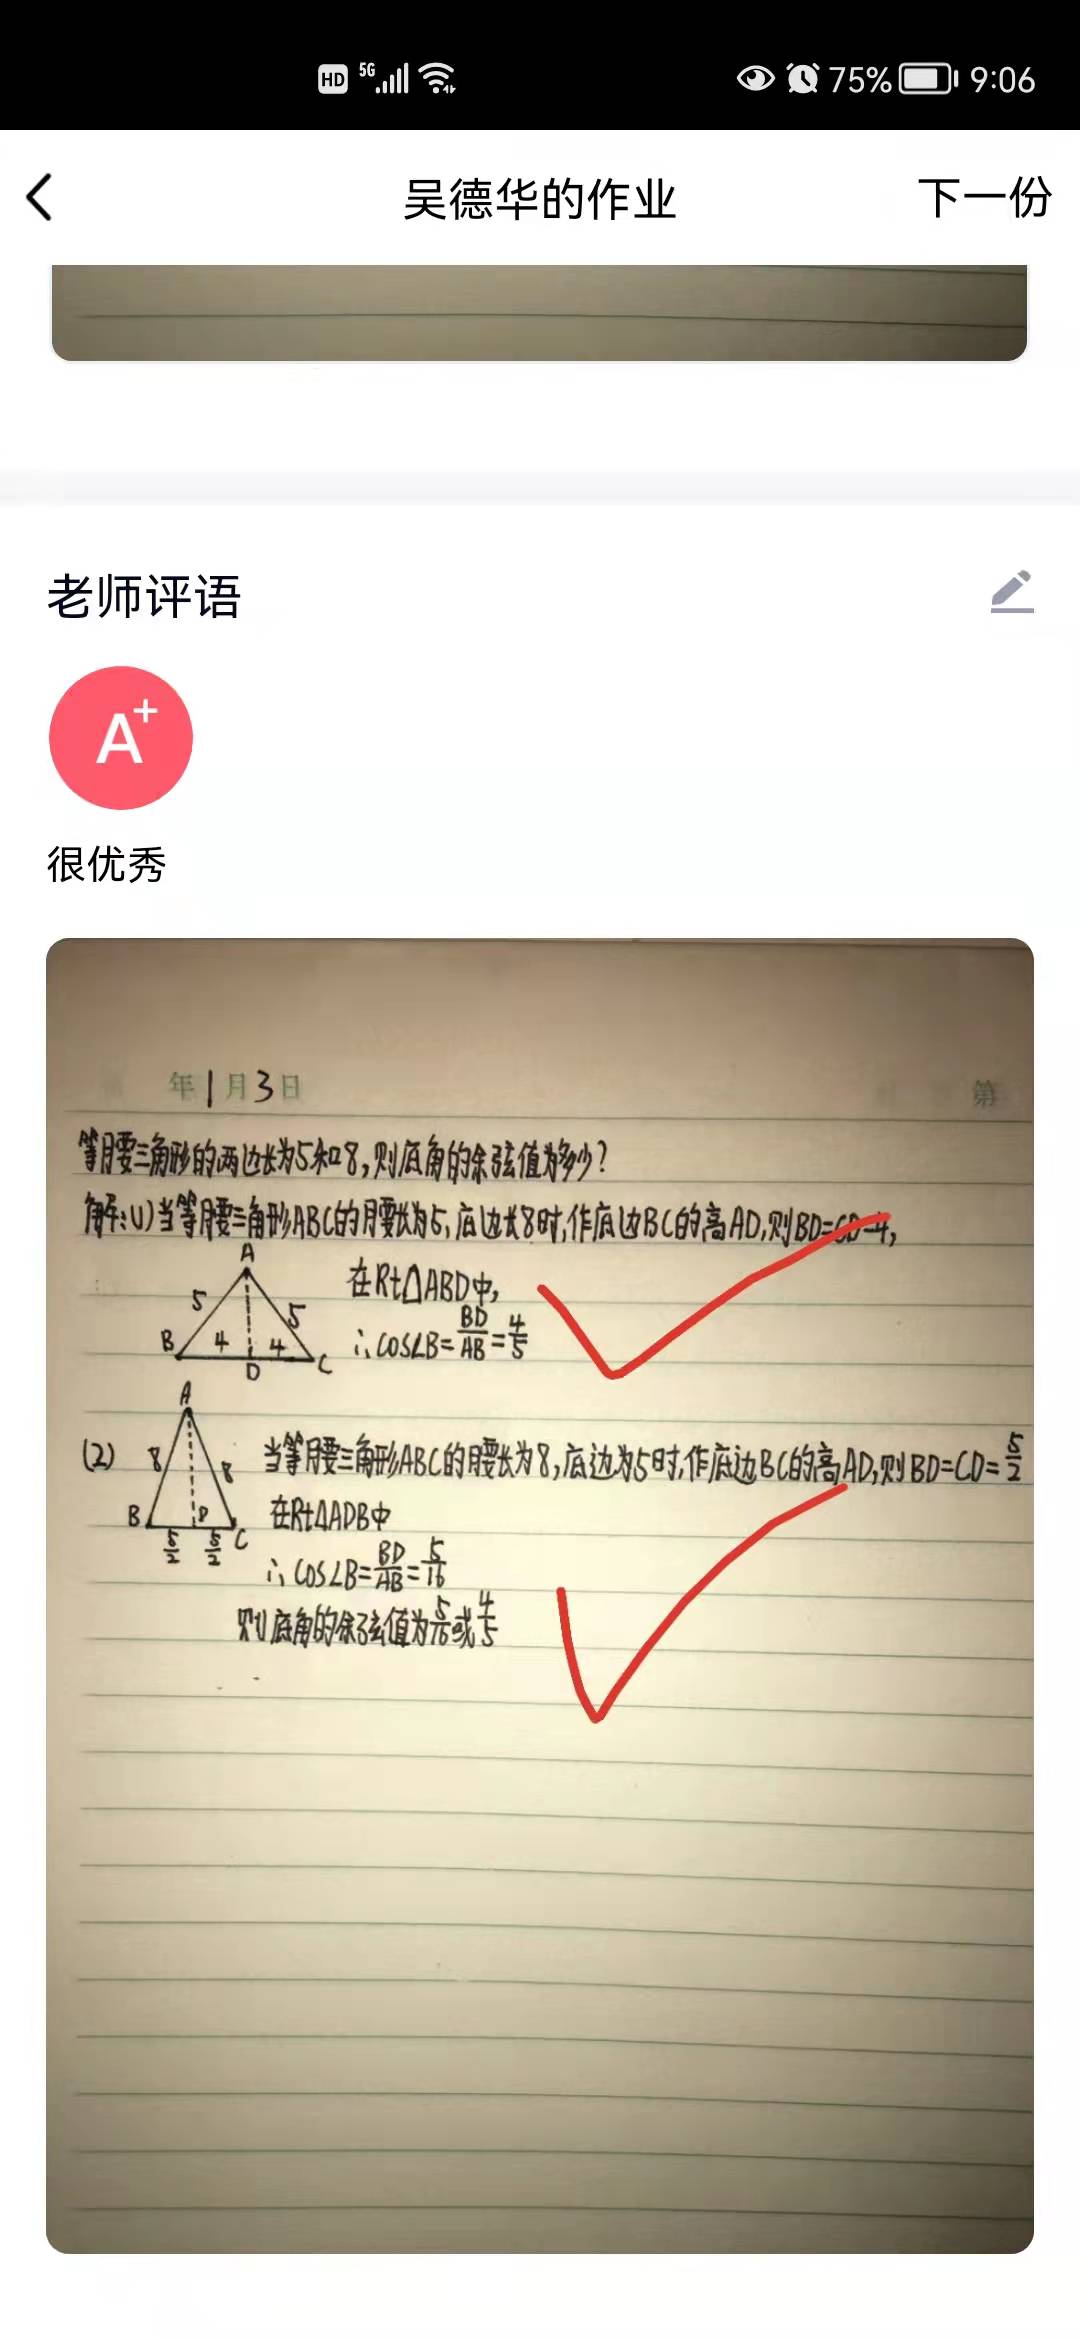 HD 5G 75% 9:06
吴德华的作业 下一份
老师评语
A+
很优秀
年1月3日 第
等腰三角形的两边长为5和8,则底角的余弦值为多少?
解:(1)当等腰三角形ABC的腰长为5,底边长8时,作底边BC的高AD,则BD=CD=4,
A
5 5
B 4 4 C
D
在Rt△ABD中,
∴COS∠B=BD/AB=4/5
(2)
A
8 8
B D C
5/2 5/2
当等腰三角形ABC的腰长为8,底边为5时,作底边BC的高AD,则BD=CD=5/2
在Rt△ADB中
∴COS∠B=BD/AB=5/16
则底角的余弦值为5/16或4/5